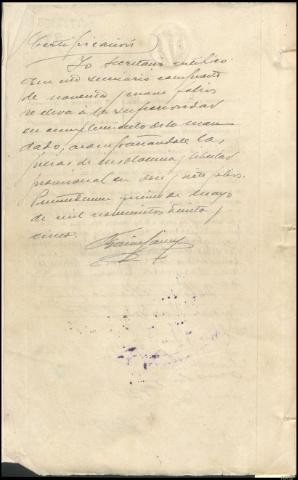 Certificación
Yo Secretario certifico
que este sumario compuesto
de noventa y nueve folios
se eleva a la superioridad
en cumplimiento de lo man
dado, acompañandole las
piezas de insolvencia, libertad
provisional en y siete folios.
primero de mayo
de mil novecientos treinta y
cinco.